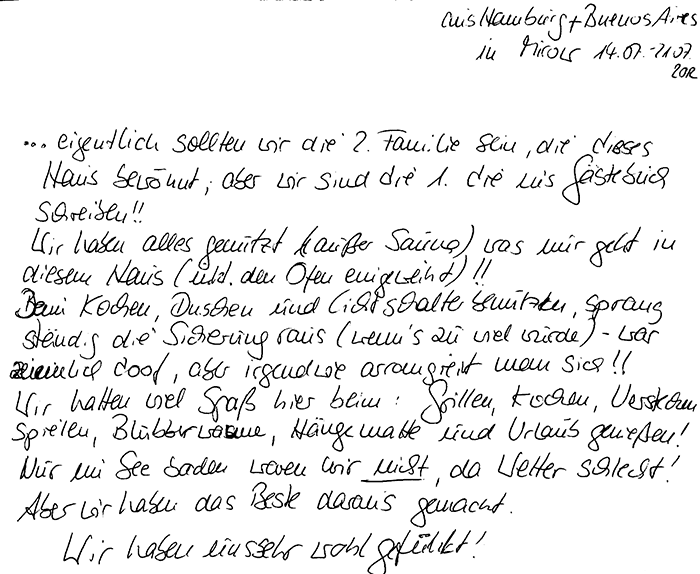 aus Hamburg + Buenos Aires
in Mirow 14.07.-21.07.
2012
... eigentlich sollten wir die 2. Familie sein, die dieses
Haus bewohnt, aber wir sind die 1. die ins Gästebuch
schreiben!!
Wir haben alles genutzt (außer Sauna) was nur geht in
diesem Haus (inkl. den Ofen eingeweiht)!!
Beim Kochen, Duschen und Lichtschalter benutzen, sprang
ständig die Sicherung raus (wenn's zu viel wurde) - war
ziemlich doof, aber irgendwie arrangiert man sich!!
Wir hatten viel Spaß hier beim: Grillen, Kochen, Verstecken
Spielen, Blubberwanne, Hängematte und Urlaub genießen!
Nur im See baden waren wir nicht, da Wetter schlecht!
Aber wir haben das Beste daraus gemacht.
Wir haben uns sehr wohl gefühlt!